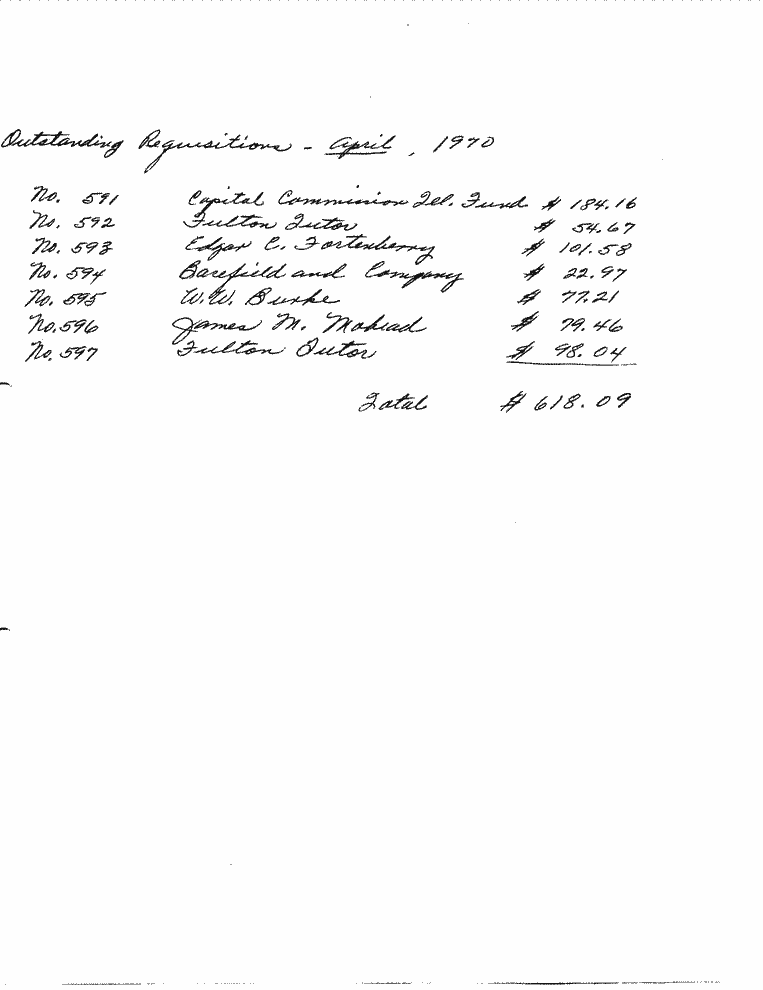 Outstanding Requisitions - April, 1970
No. 591 Capital Commission Tel. Fund $ 184.16
No. 592 Fulton Tutor $ 54.67
No. 593 Edgar C. Fortenberry $ 101.58
No. 594 Barefield and Company $ 22.97
No. 595 W.W. Burke $ 77.21
No. 596 James M. $ 79.46
No. 597 Fulton Tutor $ 98.04
Total $ 618.09